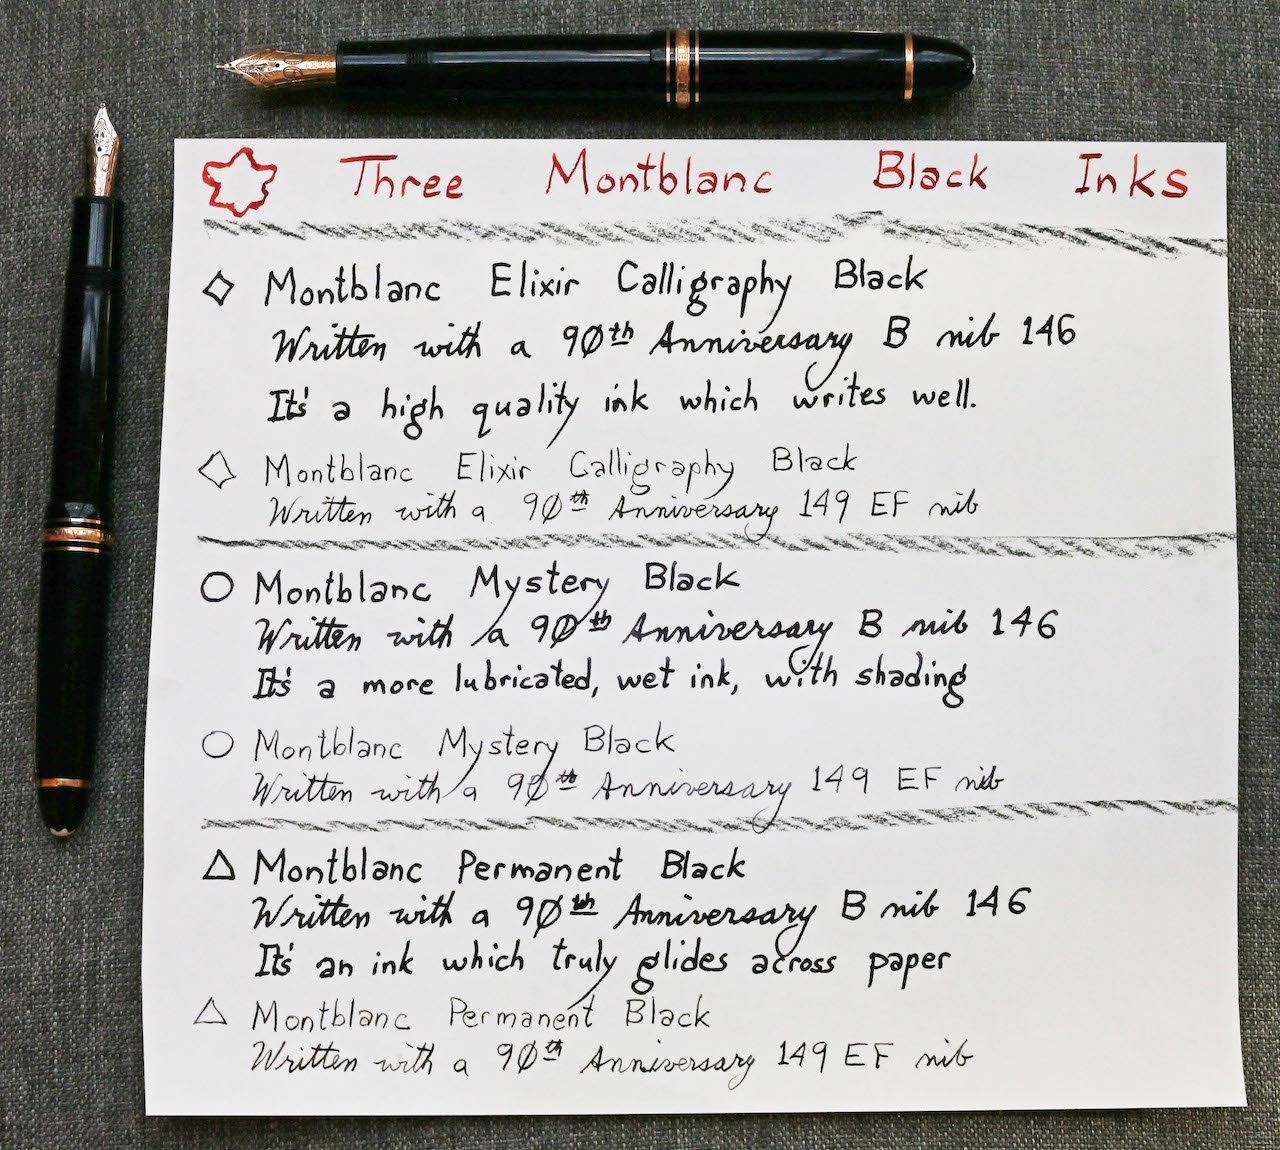 Three Montblanc Black Inks
Montblanc Elixir Calligraphy Black
Written with a 90th Anniversary B nib 146
It's a high quality ink which writes well.
Montblanc Elixir Calligraphy Black
Written with a 90th Anniversary 149 EF nib
Montblanc Mystery Black
Written with a 90th Anniversary B nib 146
It's a more lubricated, wet ink, with shading
Montblanc Mystery Black
Written with a 90th Anniversary 149 EF nib
Montblanc Permanent Black
Written with a 90th Anniversary B nib 146
It's an ink which truly glides across paper
Montblanc Permanent Black
Written with a 90th Anniversary 149 EF nib